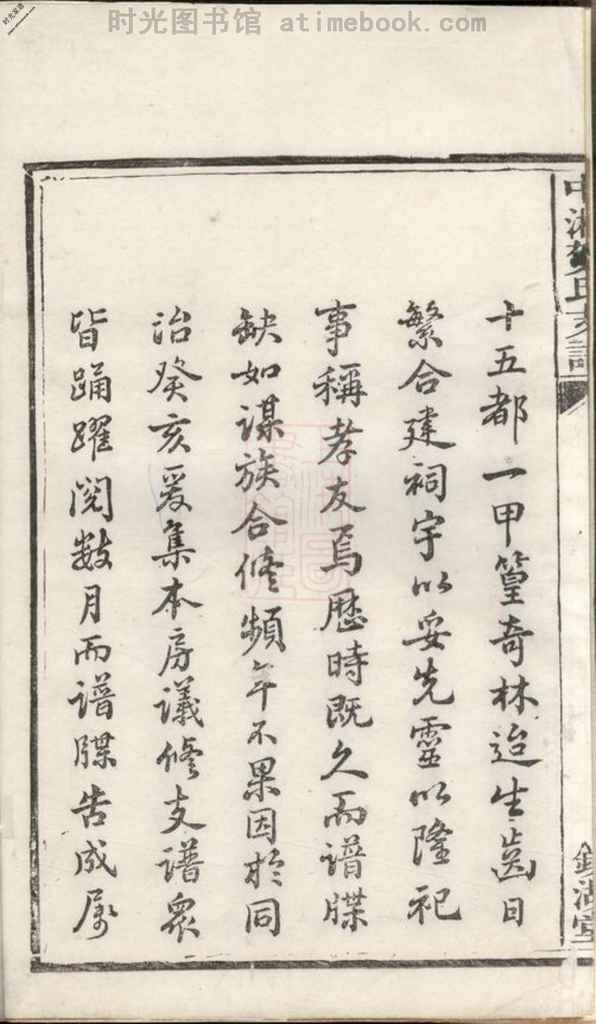 时光图书馆 atimebook.com
十五都一甲篁奇林迨生齒日
繁合建祠宇以妥先靈以隆祀
事稱孝友焉歷時既久而譜牒
缺如謀族合修頻年不果因於同
治癸亥爰集本房議修支譜衆
皆踊躍閱數月而譜牒告成屬